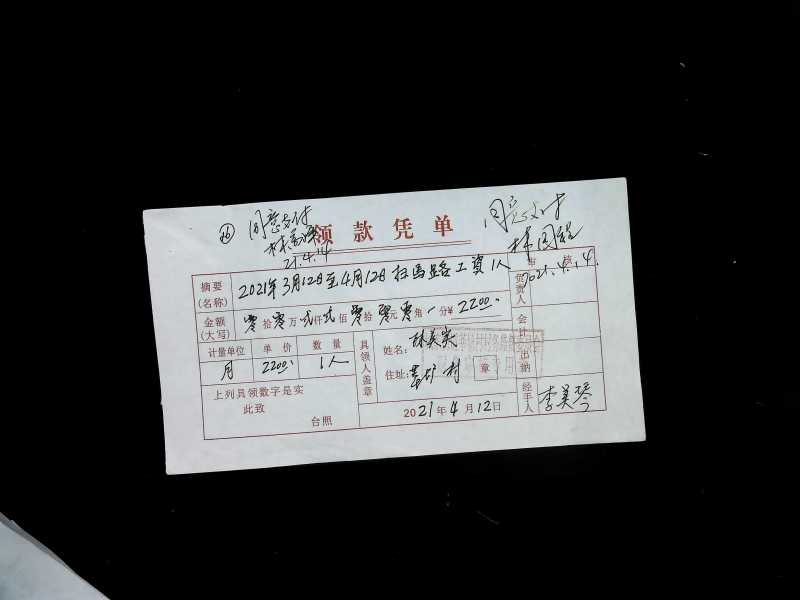 26 同意支付
21.4.14
领款凭单
同意支付
2021.4.14.
摘要(名称) 2021年3月12日至4月12日扫马路工资1人
审核
负责人
金额(大写) 零拾零万贰仟贰佰零拾零元零角一分¥2200.
会计
计量单位 单价 数量
月 2200. 1人
具领人盖章
姓名:林美
住址: 村 章
出纳
上列具领数字是实
此致
台照
2021年4月12日
经手人 李美琴